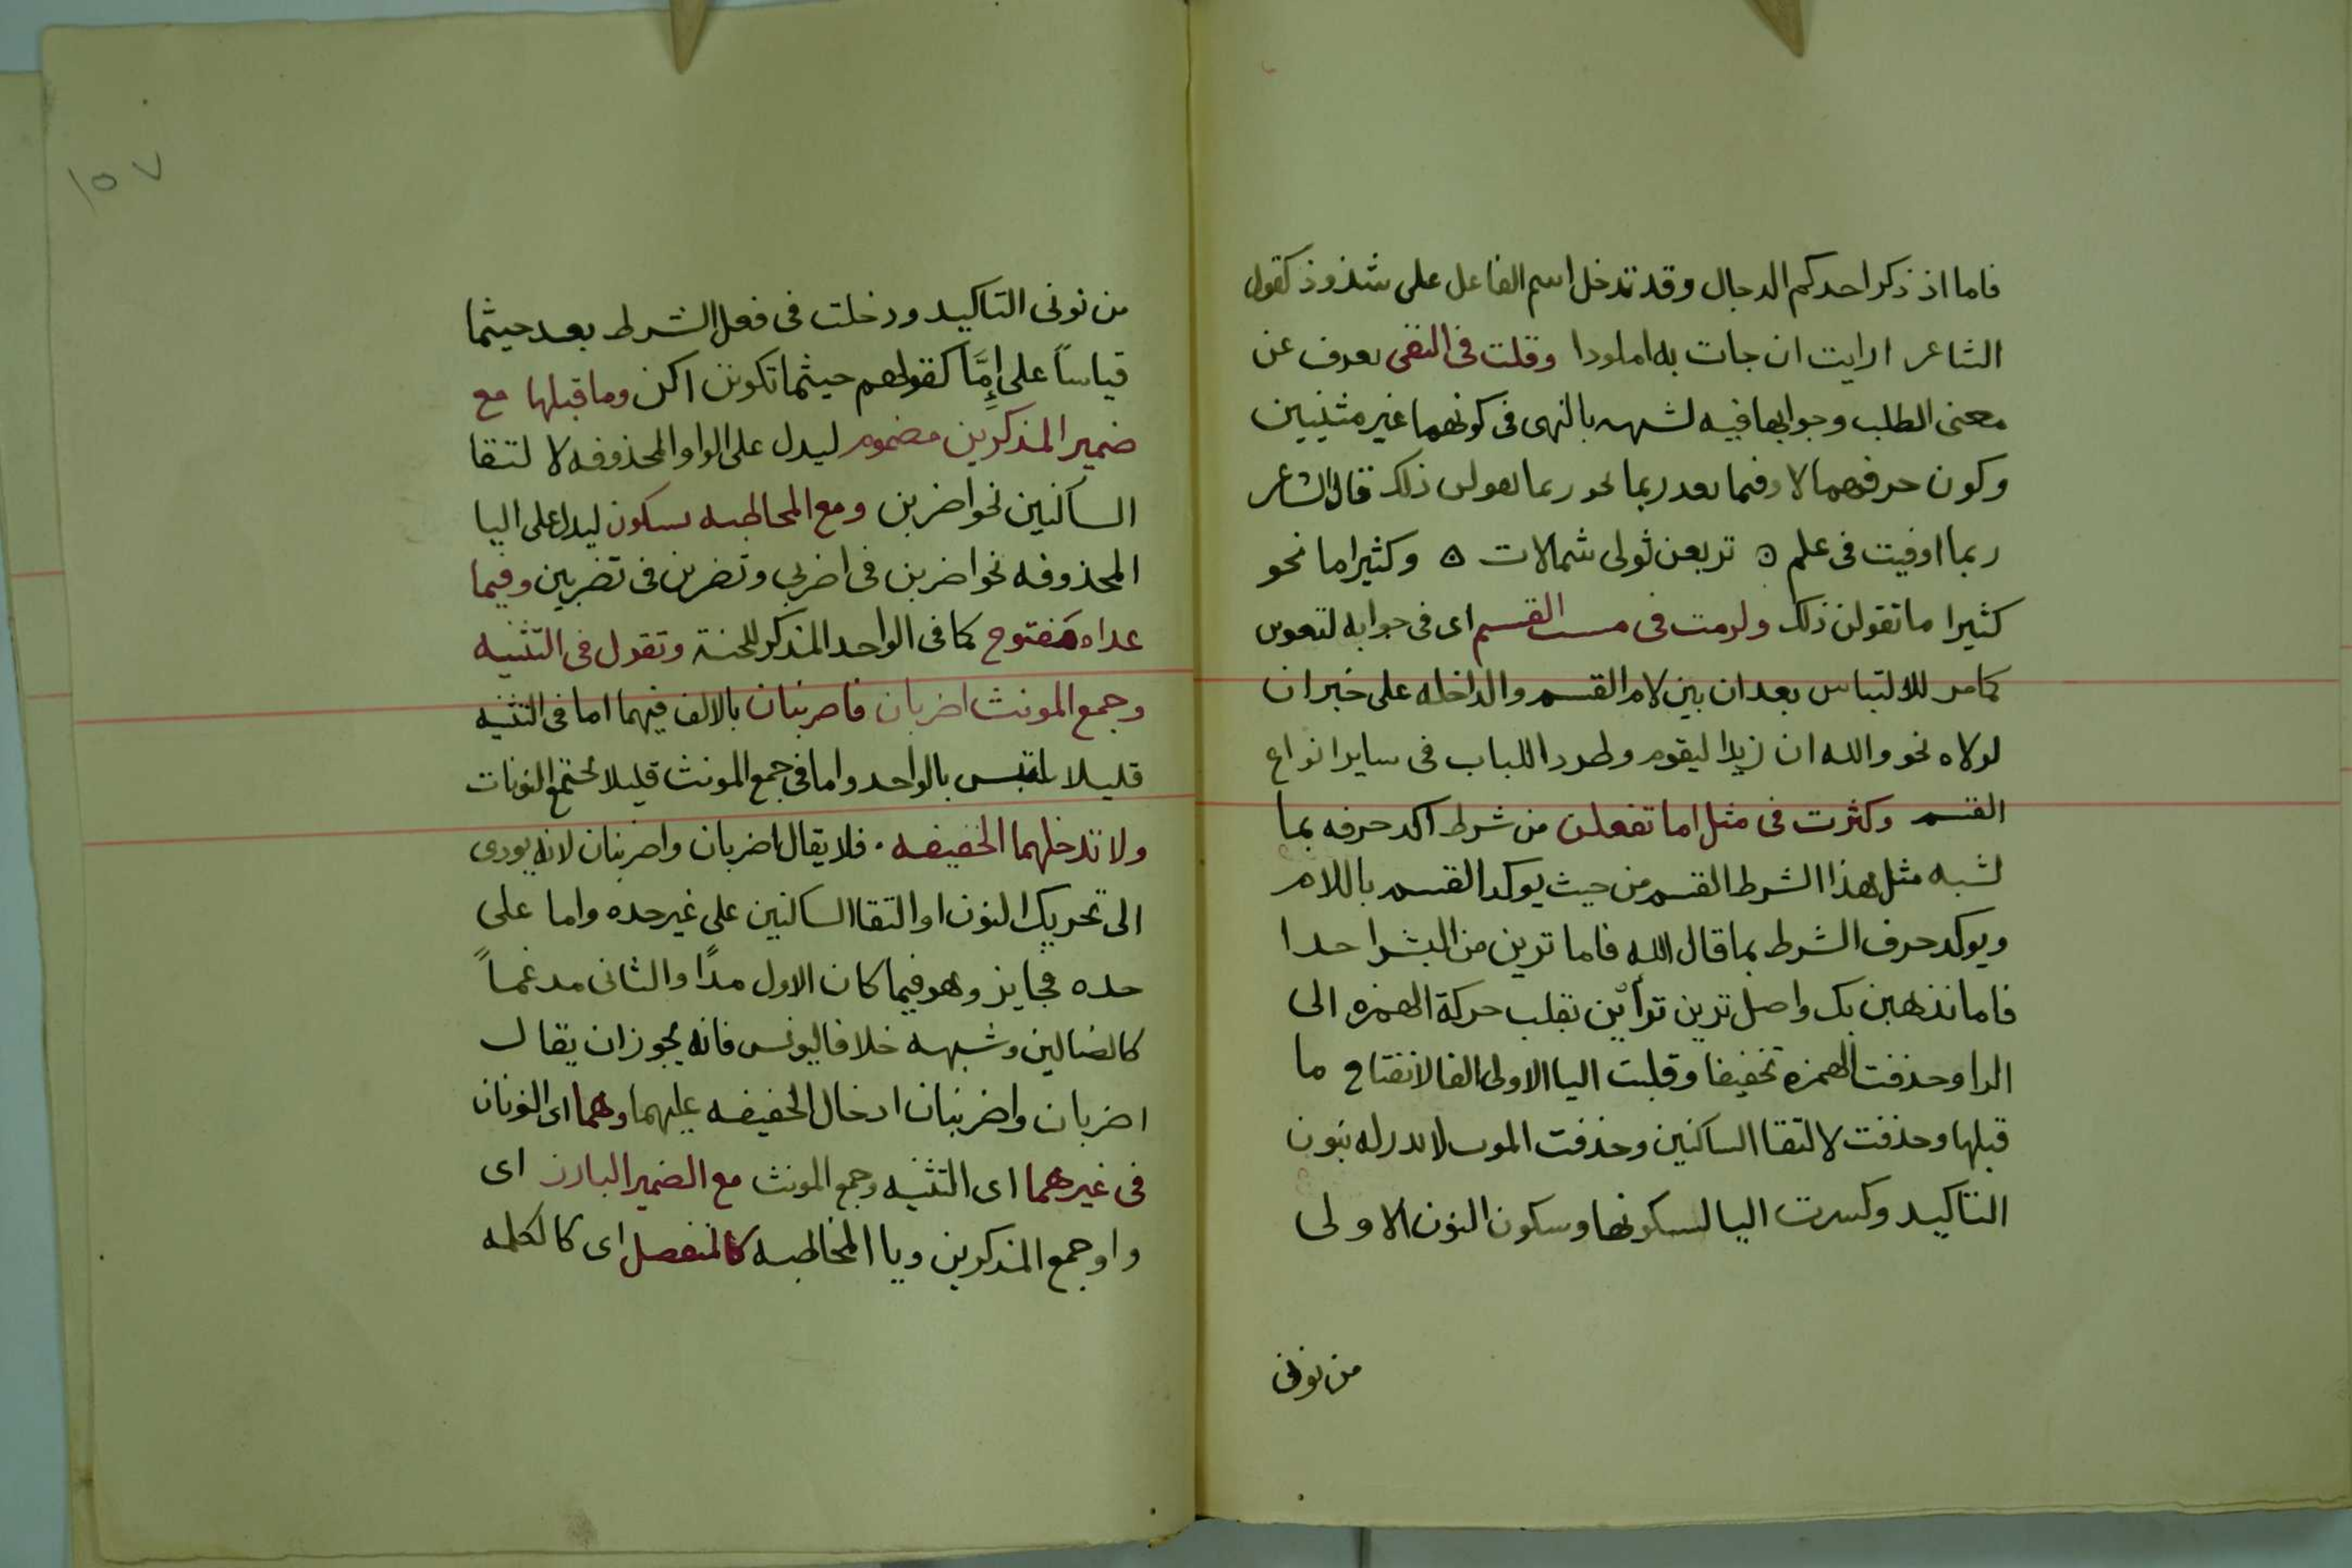 فاما اذ ذكر احدكم الدجال وقد تدخل اسم الفاعل على شذوذ كقول
الشاعر ارايت ان جات به املودا وقلت فى النفى بعرف عن
معنى الطلب وجوابها فيه لشبهه بالنهى فى كونهما غير مثبتين
وكون حرفهما لا وفيما بعد ربما نحو ربما يقولن ذلك قال الشاعر
ربما اوفيت فى علم ۞ تربعن ثولى شمالات ۞ وكثيراما نحو
كثيرا ما تقولن ذلك ولزمت فى مثبت القسم اى فى جوابه لتقومن
كامر للالتباس بعد ان بين لام القسم والداخله على خبر ان
لولاه نحو والله ان زيدا ليقوم وطرد اللباب فى ساير انواع
القسم وكثرت فى مثل اما تفعلن من شرط اكد حرفه بما
لشبه مثل هذا الشرط القسم من حيث يوكد القسم باللام
ويوكد حرف الشرط بما قال الله فاما ترين من البشر احدا
فاما نذهبن بك واصل ترين ترأيين تقلب حركة الهمزه الى
الرا وحذفت الهمزه تخفيفا وقلبت اليا الاولى الفا لانفتاح ما
قبلها وحذفت لالتقا الساكنين وحذفت النون بنون
التاكيد وكسرت اليا لسكونها وسكون النون الاولى
من نونى
١٥٧
من نونى التاكيد ودخلت فى فعل الشرط بعد حيثما
قياساً على إمَّا كقولهم حيثما تكونن اكن وما قبلها مع
ضمير المذكرين مضموم ليدل على الواو المحذوفه لالتقا
الساكنين نحو اضربن ومع المخاطبه بسكون ليدل على اليا
المحذوفه نحو اضربن فى اضربى وتضربن فى تضربين وفيما
عداه مفتوح كما فى الواحد المذكر للخنة وتقول فى التثنيه
وجمع المونث اضربان فاضربنان بالالف فيهما اما فى التثنيه
قليلا يلتبس بالواحد واما فى جمع المونث قليلا تجتمع النونات
ولا تدخلهما الخفيفه . فلا يقال اضربان واضربنان لانه يودى
الى تحريك النون او التقا الساكنين على غير حده واما على
حده فجايز وهو فيما كان الاول مدًا والثانى مدغماً
كالضالين وشبهه خلافا ليونس فانه يجوز ان يقال
اضربان واضربنان ادخال الخفيفه عليهما وهما اى النونان
فى غيرهما اى التثنيه وجمع المونث مع الضمير البارز اى
واو جمع المذكرين ويا المخاطبه كالمنفصل اى كالكلمه